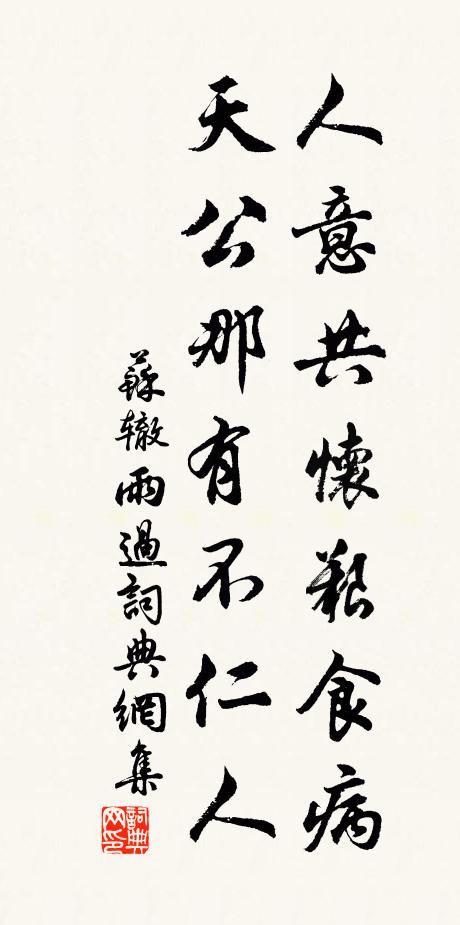 人意共懷艱食病
天公那有不仁人
蘇轍雨過詞典網集
詞典
网印